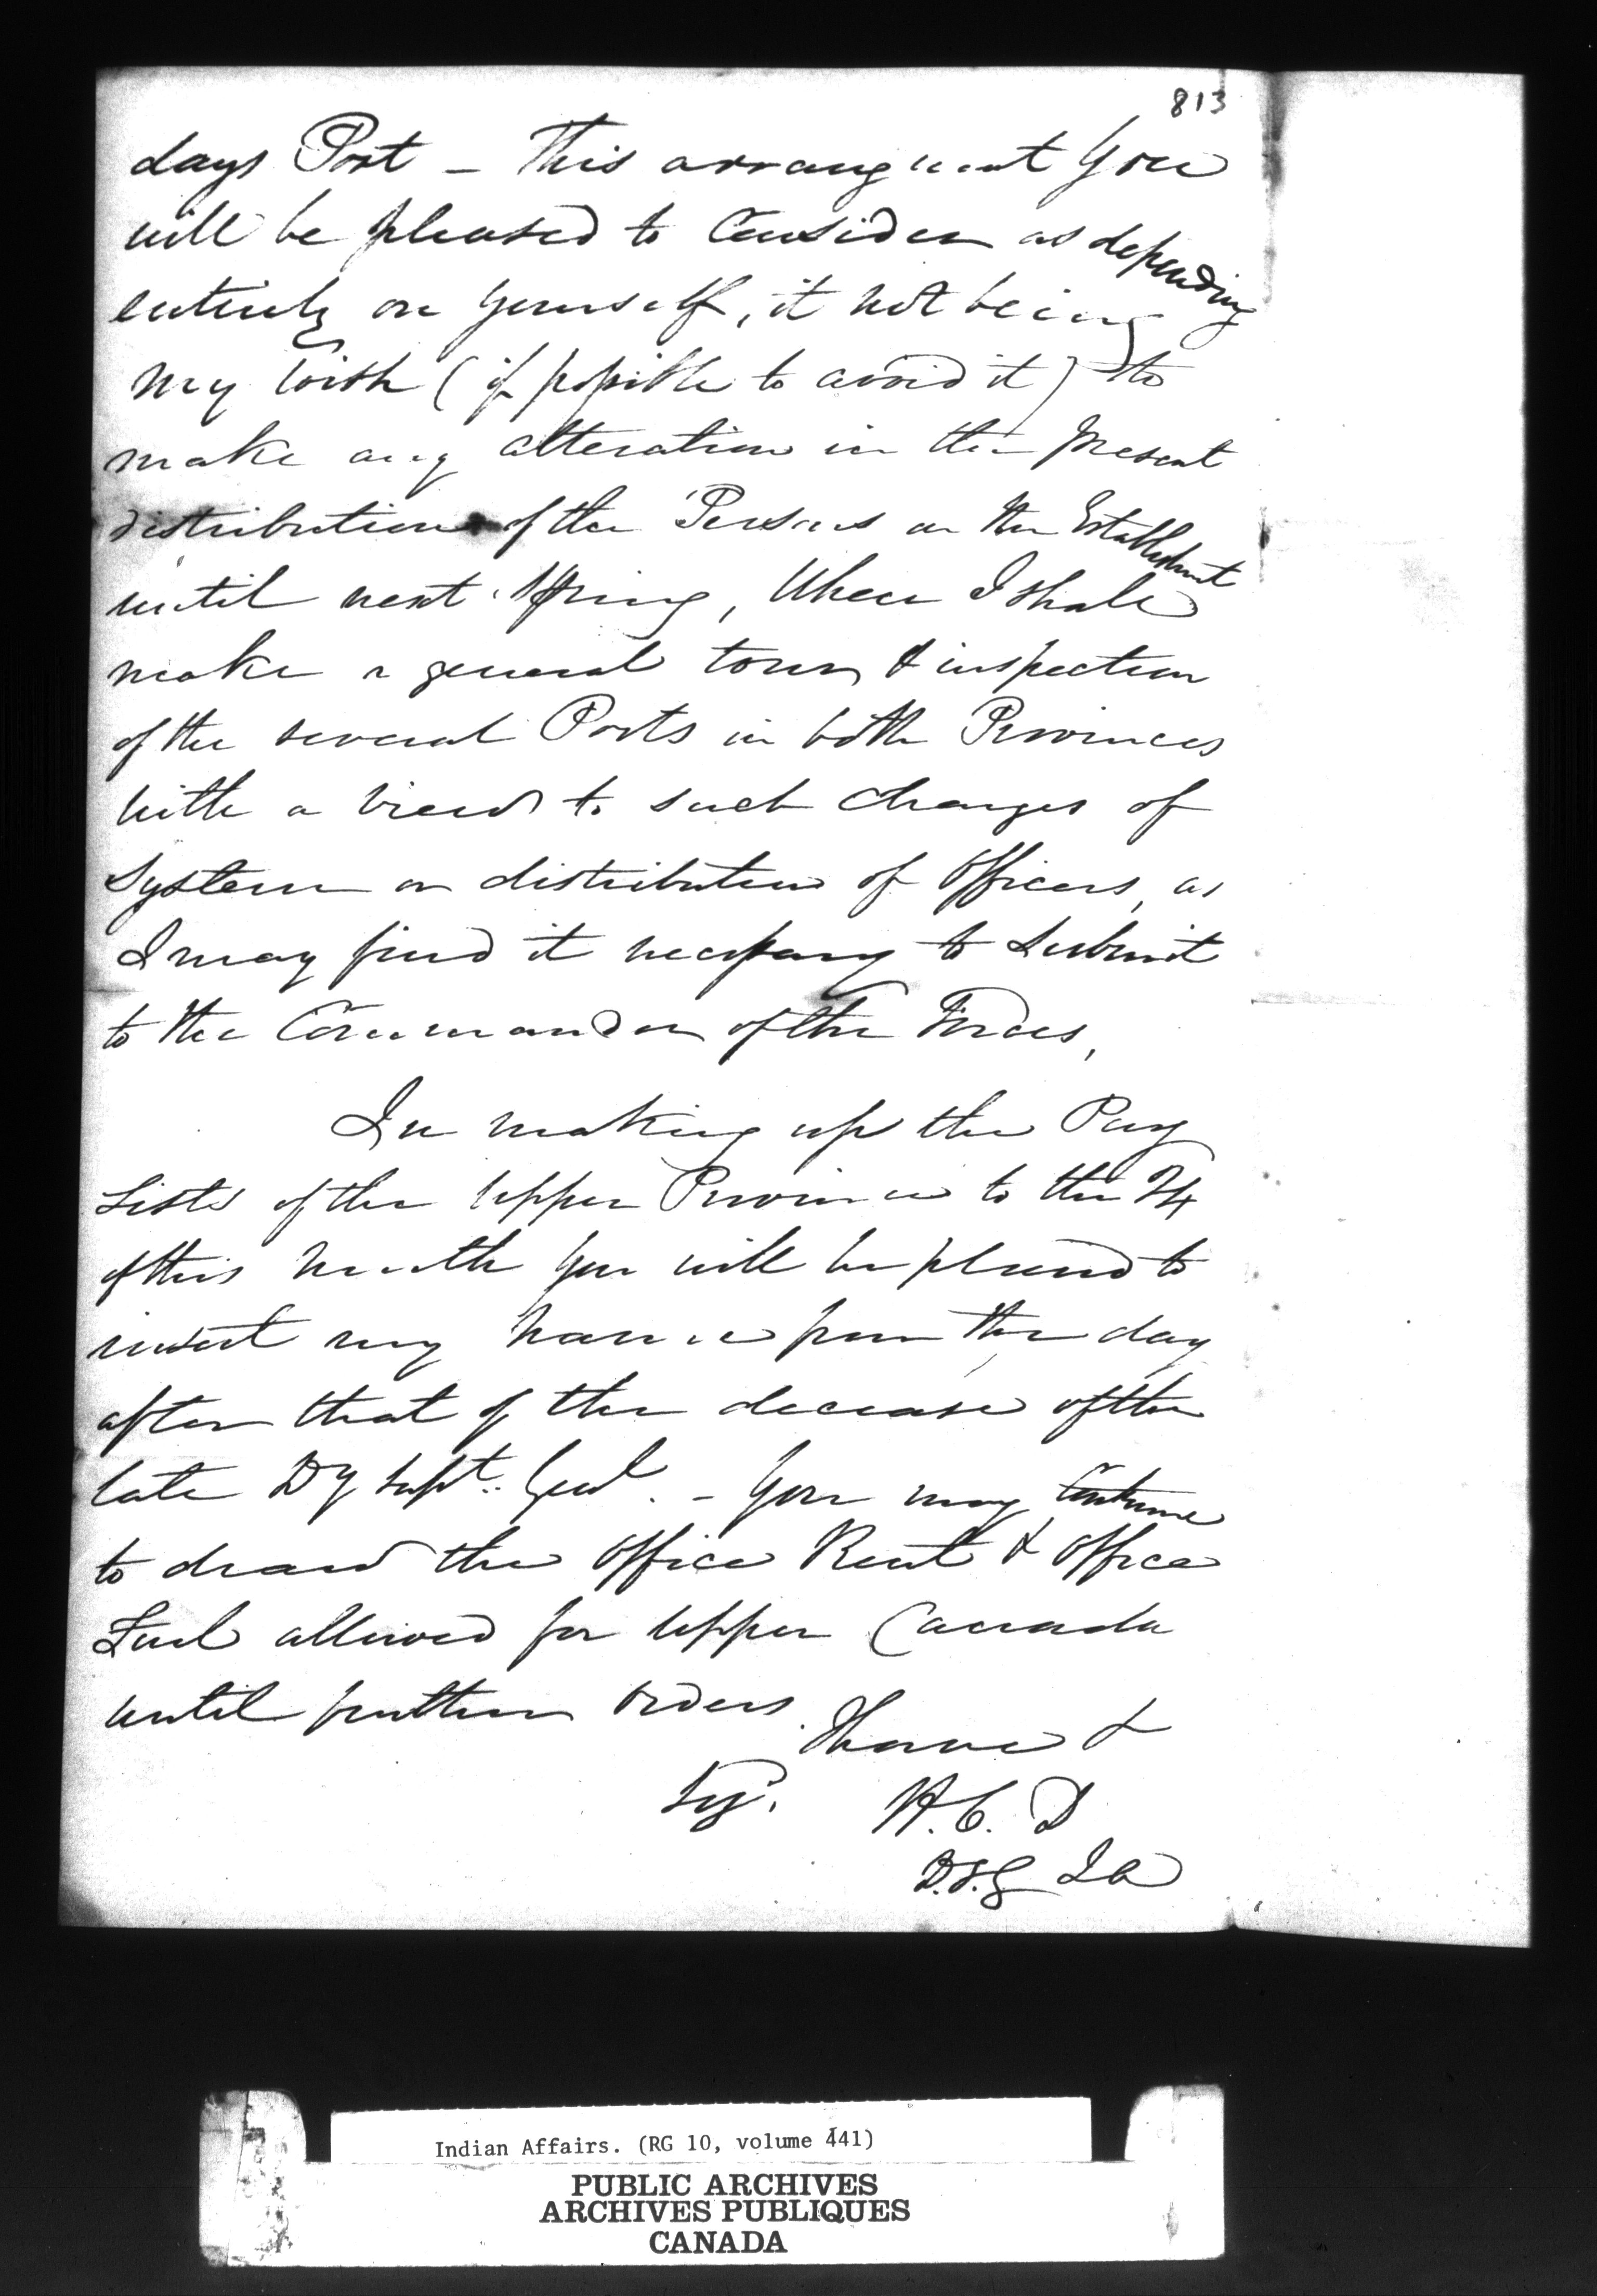 813
days Post - This arrangement you
will be pleased to Consider as depending
entirely on yourself, it not being
my wish (if possible to avoid it) to
make any alteration in the present
distribution of the Persons on the Establishmt
until next Spring, When I shall
make a general tour & inspection
of the several Posts in both Provinces
with a view to such changes of
System or distribution of Officers, as
I may find it necessary to Submit
to the Commander of the Forces,
In making up the Pay
Lists of the Upper Province to the 24
of this month you will be pleased to
insert my name from the day
after that of the decease of the
late Dy Supt. Genl. - You may Continue
to draw the Office Rent & Office
Fuel allowed for Upper Canada
until further orders.
I have &
H. C. D
D.S.G I A
Indian Affairs. (RG 10, volume 441)
PUBLIC ARCHIVES
ARCHIVES PUBLIQUES
CANADA